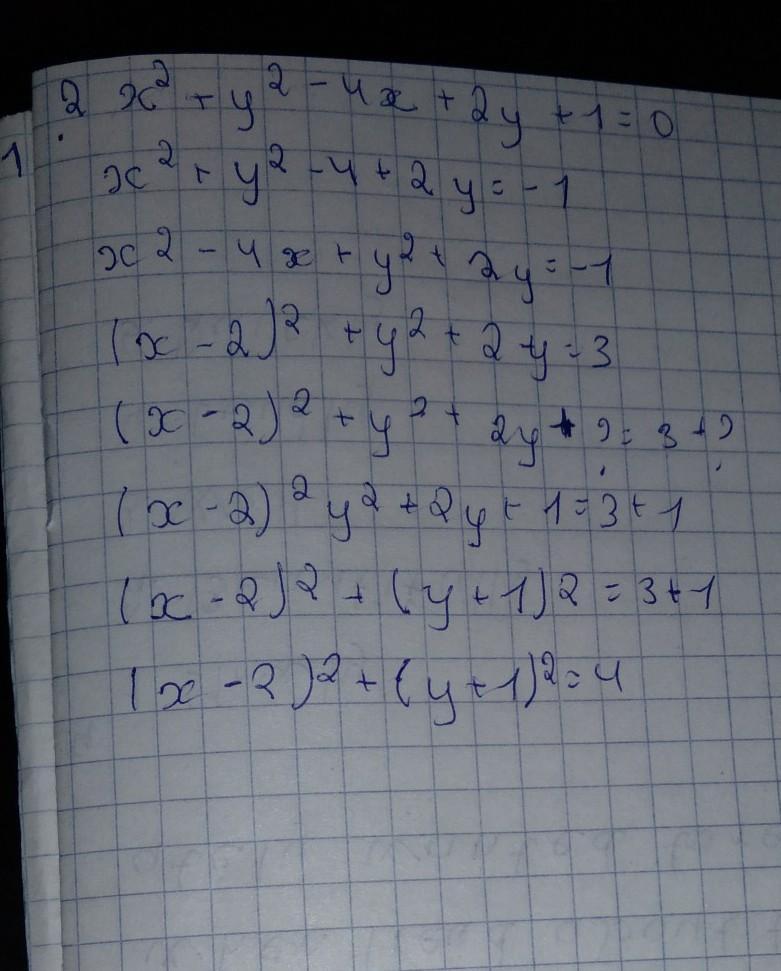 2. x² + y² - 4x + 2y + 1 = 0
1
x² + y² - 4 + 2y = -1
x² - 4x + y² + 2y = -1
(x - 2)² + y² + 2y = 3
(x - 2)² + y² + 2y + ? = 3 + ?
(x - 2)² y² + 2y + 1 = 3 + 1
(x - 2)² + (y + 1)2 = 3 + 1
(x - 2)² + (y + 1)² = 4